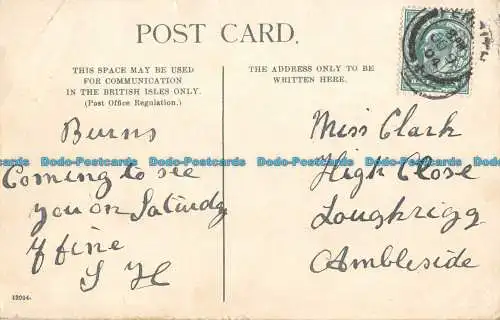 POST CARD.
THIS SPACE MAY BE USED
FOR COMMUNICATION
IN THE BRITISH ISLES ONLY.
(Post Office Regulation.)
THE ADDRESS ONLY TO BE
WRITTEN HERE.
Burns
Coming to see
you on Saturday
If fine
S H
Miss Clark
High Close
Loughrigg
Ambleside
Dodo-Postcards Dodo-Postcards Dodo-Postcards Dodo-Postcards Dodo-Postcards
12014.